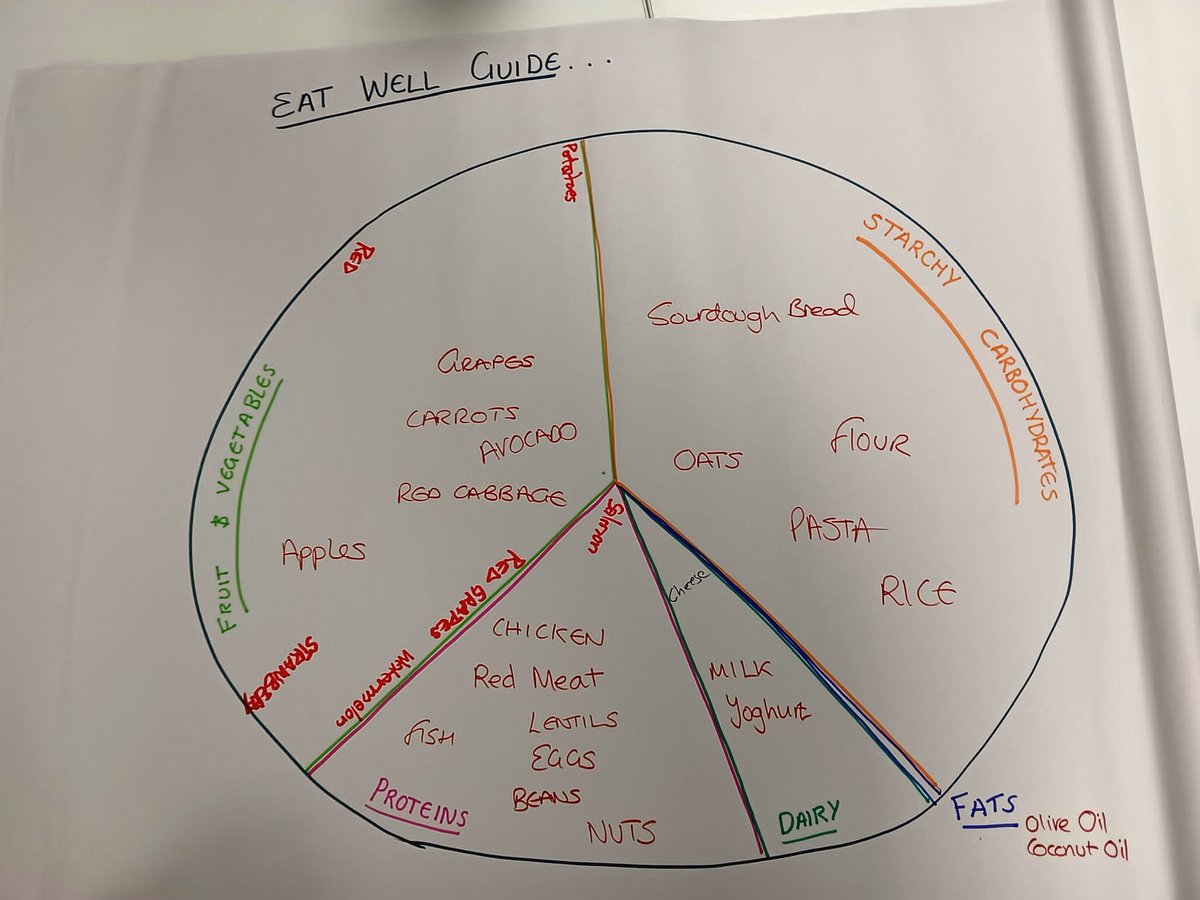 EAT WELL GUIDE...
Potatoes
RED
GRAPES
CARROTS
AVOCADO
RED CABBAGE
Apples
FRUIT & VEGETABLES
STRAWBERRY
RED GRAPES
Watermelon
STARCHY CARBOHYDRATES
Sourdough Bread
OATS
flour
PASTA
RICE
Salmon
CHICKEN
Red Meat
LENTILS
FISH
EGGS
BEANS
NUTS
PROTEINS
Cheese
MILK
Yoghurt
DAIRY
FATS
Olive Oil
Coconut Oil